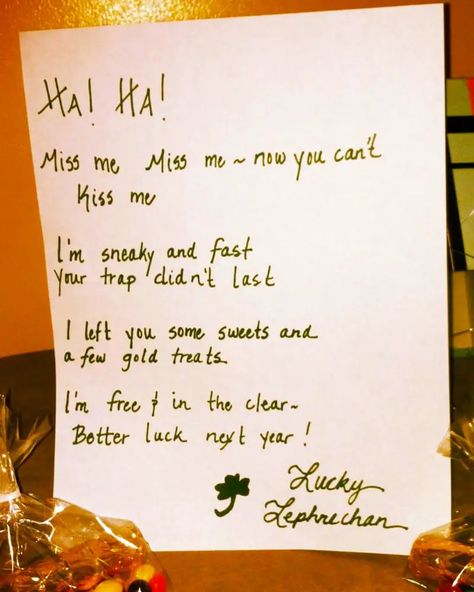 HA! HA!
Miss me Miss me ~ now you can't
Kiss me
I'm sneaky and fast
Your trap didn't last
I left you some sweets and
a few gold treats.
I'm free & in the clear~
Better luck next year!
Lucky
Lephrechan